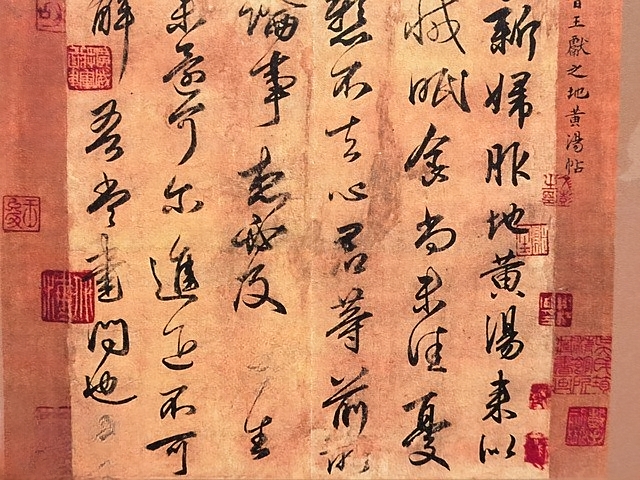 晉王獻之地黃湯帖
新婦服地黃湯來似
減眠食尚未佳憂
懸不去心君等前所
論事想必及 生
未還何尔進退不可
解吾當書問也